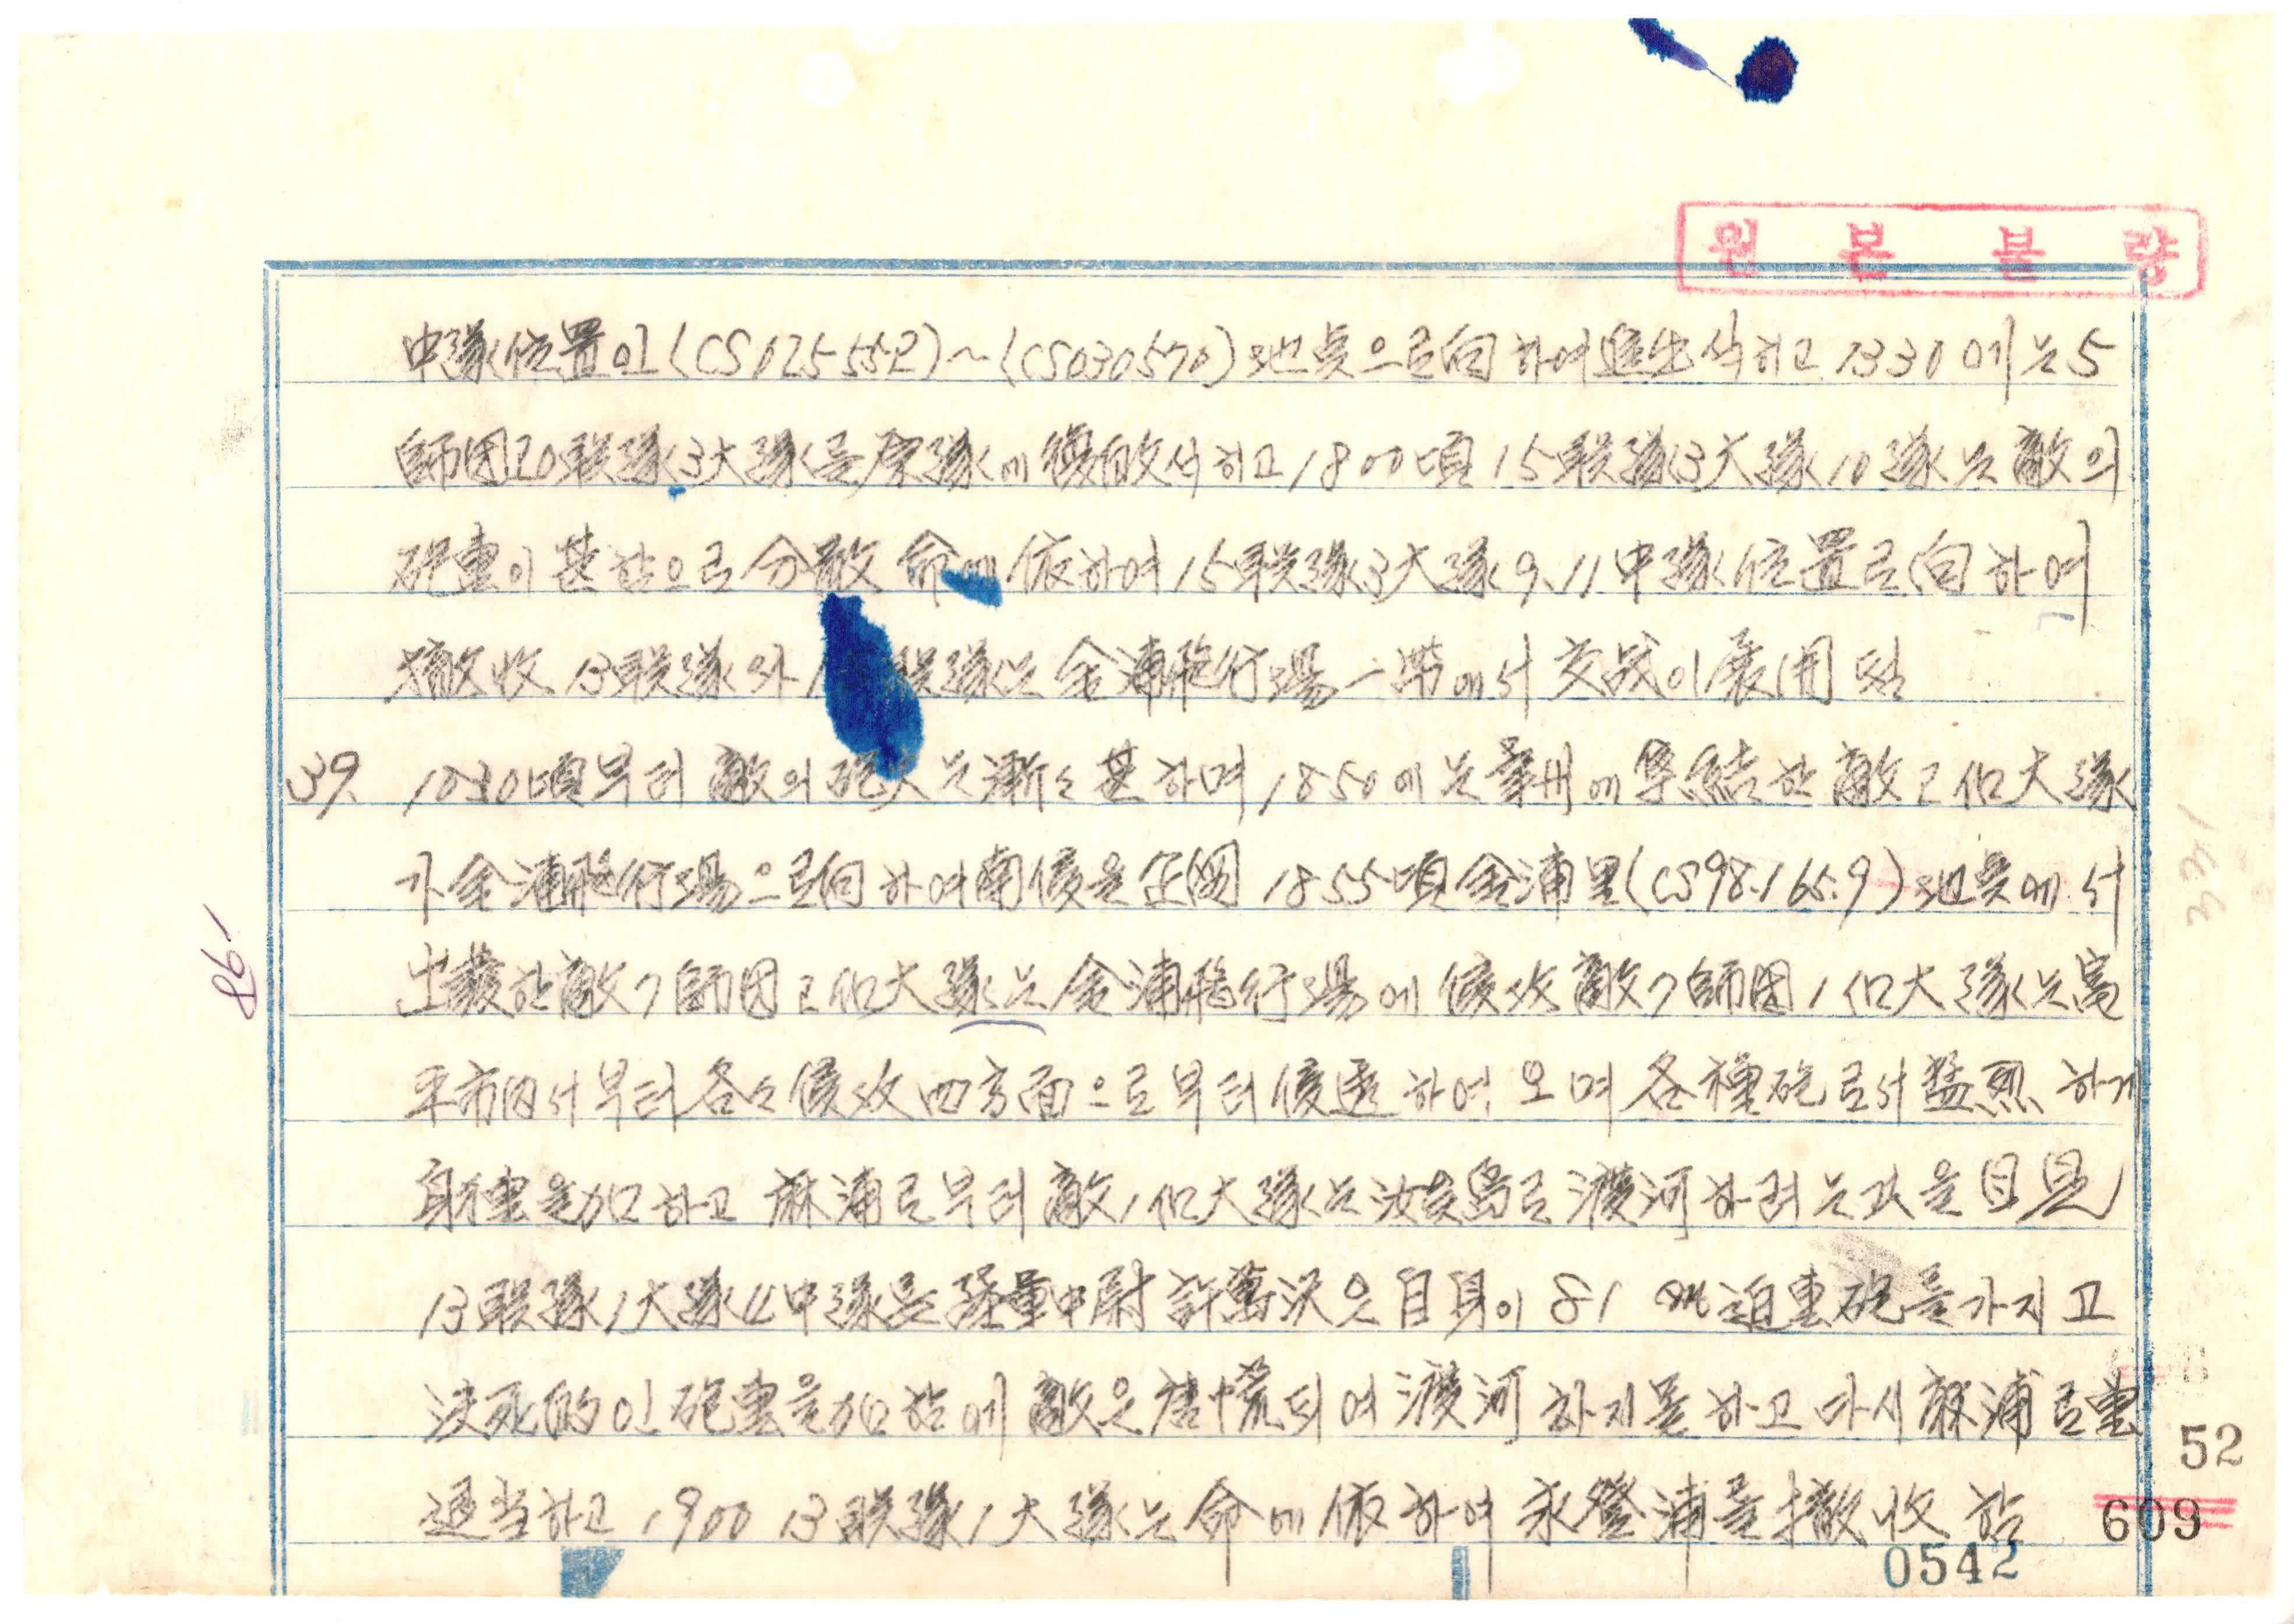 원본불량
中隊位置인 (CS025552)~(CS030570)地点으로 向하여 進出식히고 1330에는 5
師団20联隊3大隊를 原隊에 復敀식히고 1800頃 15联隊3大隊10隊는 敵의
砲擊이 甚함으로 分散 命에 依하여 15联隊3大隊9.11中隊位置로 向하여
撤收 13联隊外 联隊는 金浦飛行場一帶에서 交战이 展開됨
39. 1830頃부터 敵의 砲火는 漸々甚하며 1850에는 集結한 敵2個大隊
가 金浦飛行場으로 向하여 南侵을 企図 1855頃 金浦里(CS98.1 65.9)地点에서
出發한 敵7師団2個大隊는 金浦飛行場에 侵攻 敵7師団1個大隊는 高
平市內서부터 各々侵攻 四方面으로부터 侵透하여 오며 各種砲로서 猛烈하게
射擊을 加하고 麻浦로부터 敵1個大隊는 汝矣島로 渡河하려는 것을 目見
13联隊1大隊4中隊長 陸軍中尉 許萬沃은 自身이 81 迫擊砲를 가지고
決死的인 砲擊을 加함에 敵은 唐慌되여 渡河하지 못하고 다시 麻浦로
하고 1900 13联隊1大隊는 命에 依하여 永登浦를 撤收함
98-
52
609
0542